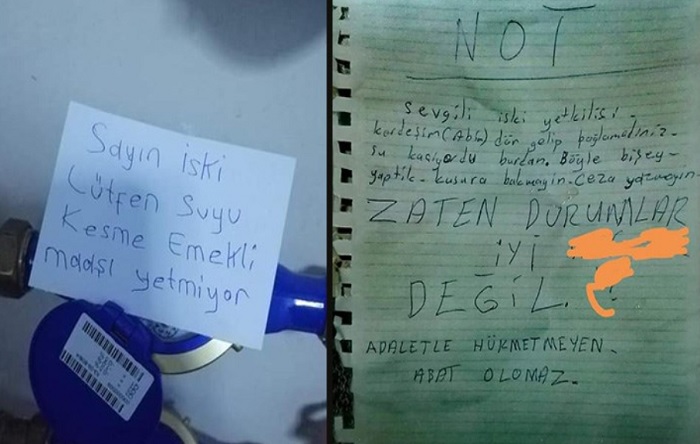 Sayın iski
Lütfen Suyu
Kesme Emekli
maaşı yetmiyor
NOT
Sevgili iski yetkilisi.
kardeşim (Abim) dün gelip bağlamadınız.
su kaçıyordu burdan. Böyle bişey
yaptik. kusura bakmayin. Ceza yazmayın.
ZATEN DURUMLAR
iyi
DEĞİL.
ADALETLE HÜKMETMEYEN.
ABAT OLOMAZ.